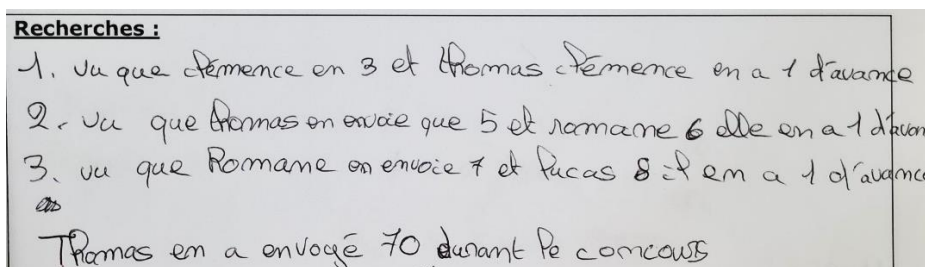 Recherches :
1. vu que clémence en 3 et thomas clémence en a 1 d'avance
2. vu que thomas en envoie que 5 et romane 6 elle en a 1 d'avan
3. vu que Romane en envoie 7 et lucas 8 il en a 1 d'avance
Thomas en a envoyé 70 durant le concours